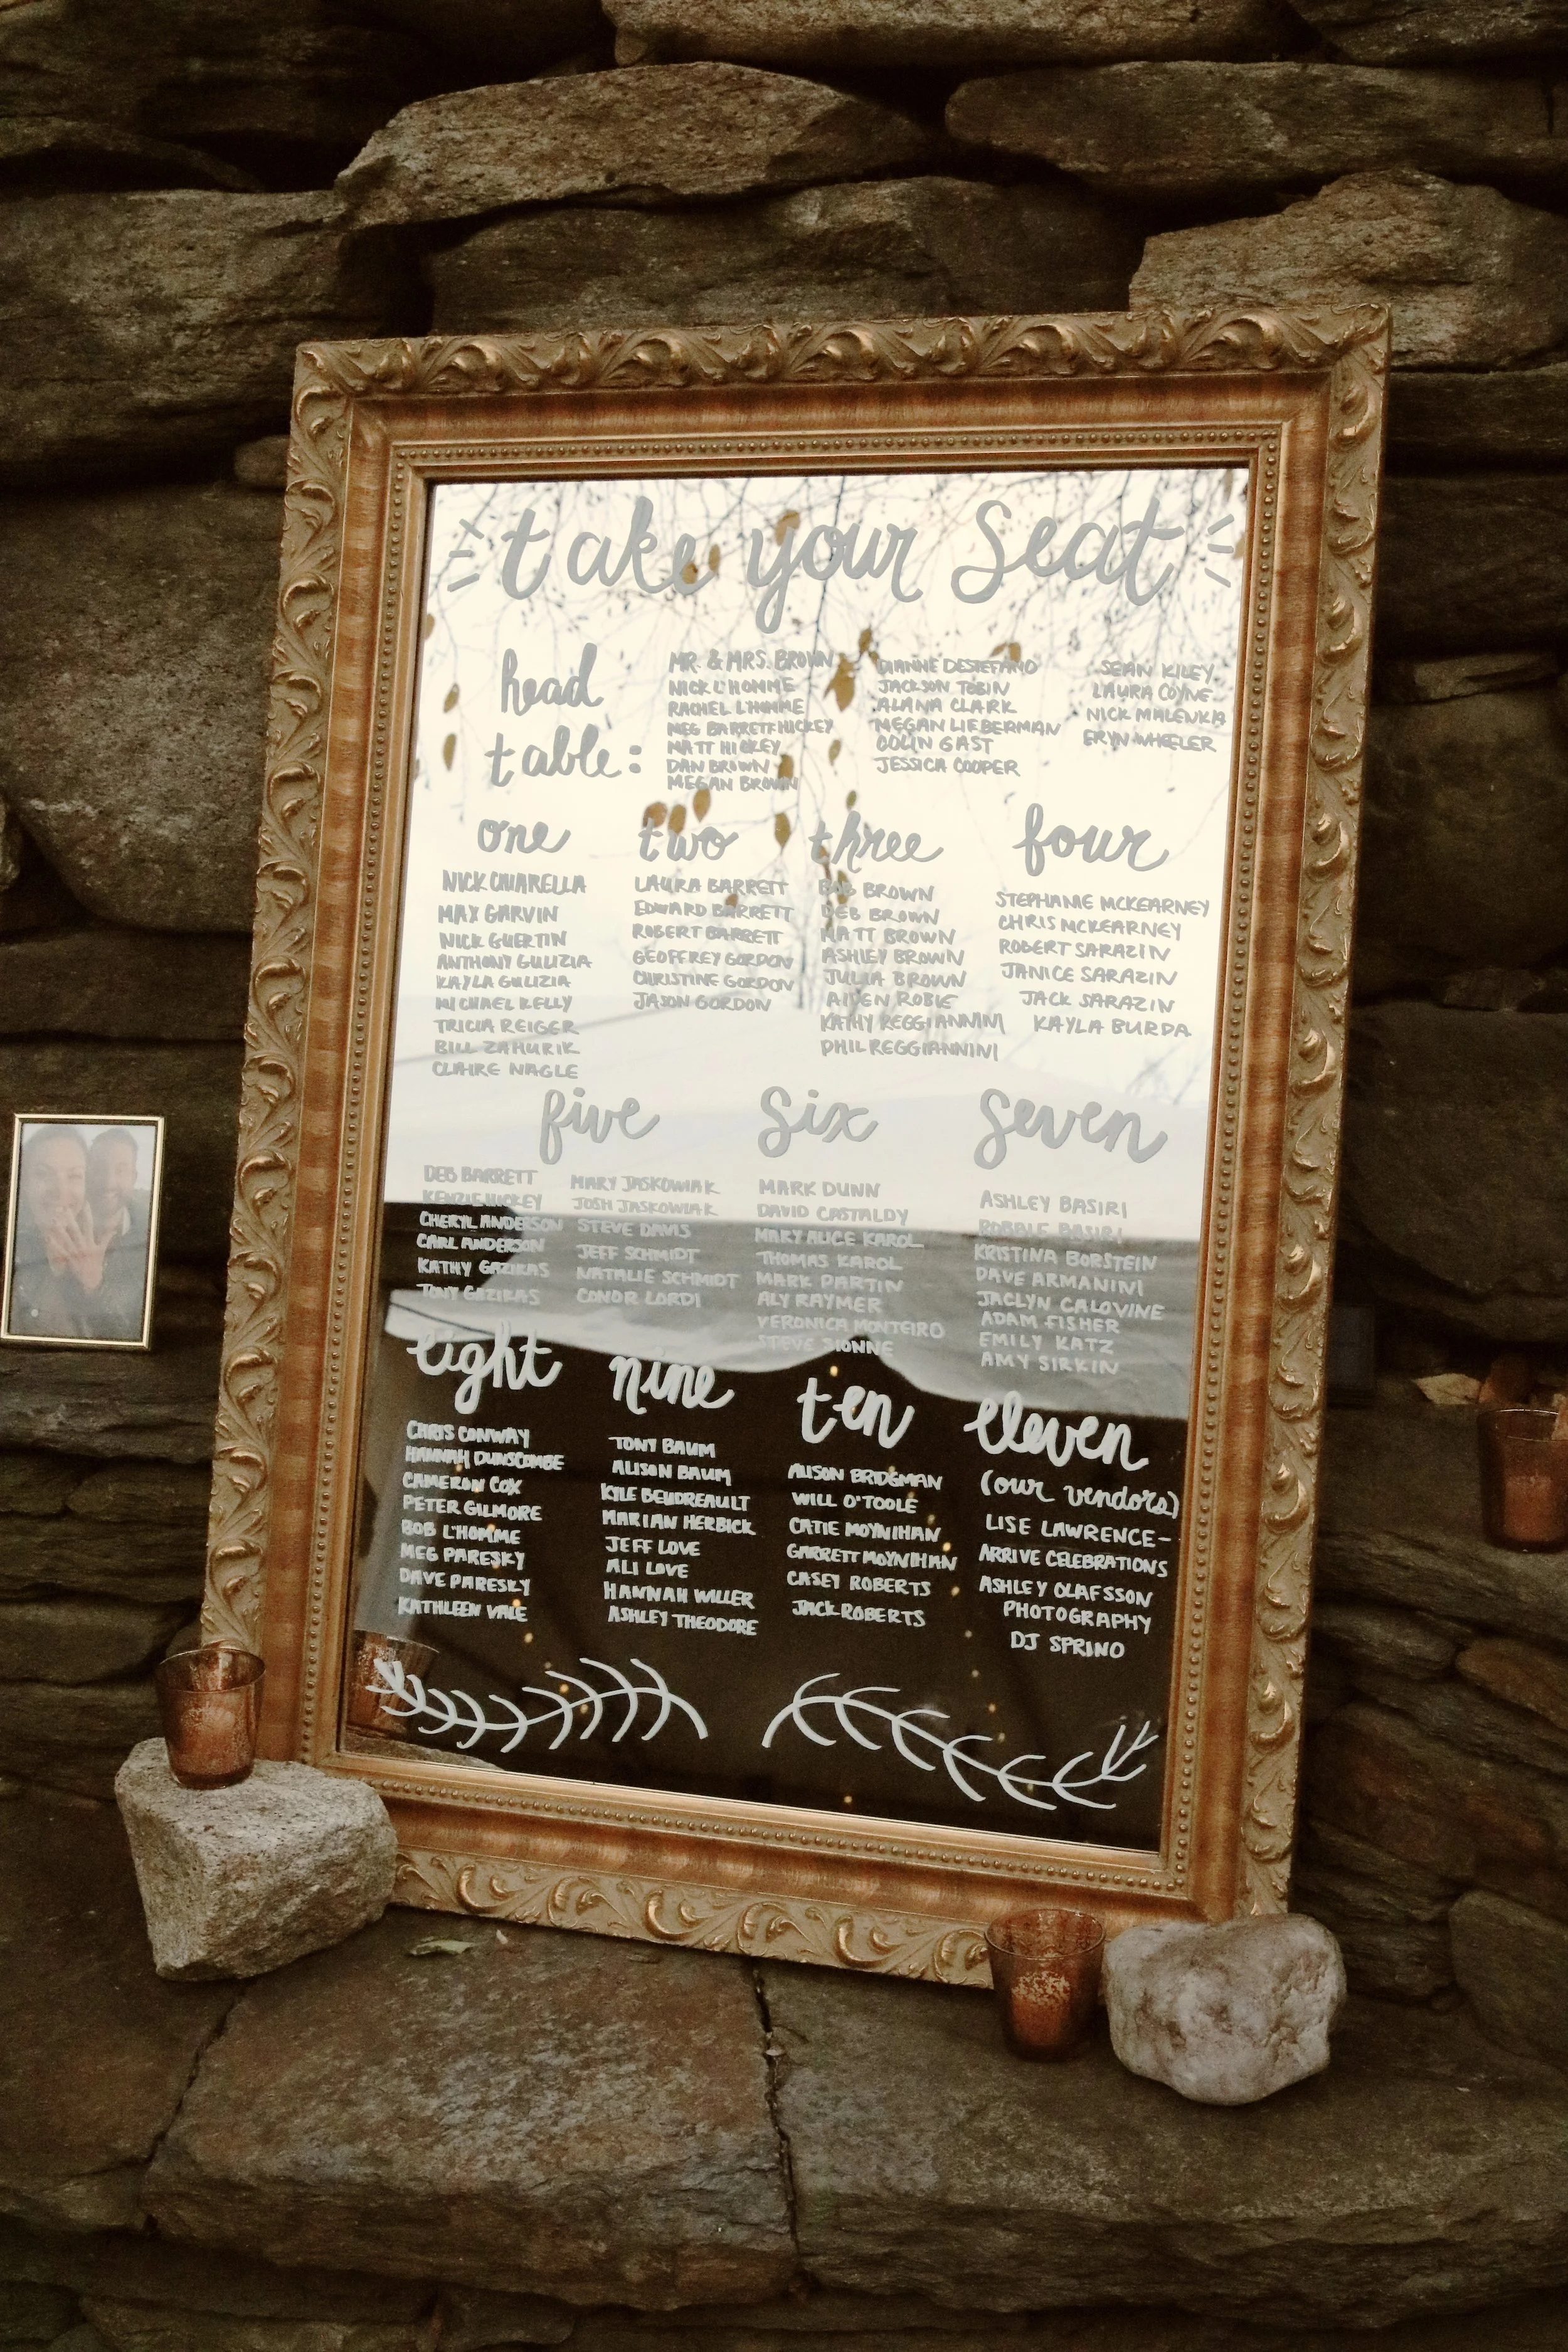 take your seat
head
table:
MR. & MRS. BROWN
NICK L'HOMME
RACHEL L'HOMME
MEG BARRETT HICKEY
MATT HICKEY
DAN BROWN
MEGAN BROWN
DIANNE DESTEFANO
JACKSON TOBIN
ALANA CLARK
MEGAN LIEBERMAN
COLIN GAST
JESSICA COOPER
SEAN KILEY
LAURA COYNE
NICK MALENKA
ERYN WHEELER
one
NICK CHIARELLA
MAX GARVIN
NICK GUERTIN
ANTHONY GULIZIA
KAYLA GULIZIA
MICHAEL KELLY
TRICIA REIGER
BILL ZAHURIK
CLAIRE NAGLE
two
LAURA BARRETT
EDWARD BARRETT
ROBERT BARRETT
GEOFFREY GORDON
CHRISTINE GORDON
JASON GORDON
three
BOB BROWN
DEB BROWN
MATT BROWN
ASHLEY BROWN
JULIA BROWN
AIDEN ROBIE
KATHY REGGIANNINI
PHIL REGGIANNINI
four
STEPHANIE MCKEARNEY
CHRIS MCKEARNEY
ROBERT SARAZIN
JANICE SARAZIN
JACK SARAZIN
KAYLA BURDA
five
DEB BARRETT
KENZIE HICKEY
CHERYL ANDERSON
CARL ANDERSON
KATHY GAZIKAS
TONY GAZIKAS
MARY JASKOWIAK
JOSH JASKOWIAK
STEVE DAVIS
JEFF SCHMIDT
NATALIE SCHMIDT
CONOR LORDI
six
MARK DUNN
DAVID CASTALDY
MARY ALICE KAROL
THOMAS KAROL
MARK PARTIN
ALY RAYMER
VERONICA MONTEIRO
STEVE SIONNE
seven
ASHLEY BASIRI
ROBBIE BASIRI
KRISTINA BORSTEIN
DAVE ARMANINI
JACLYN CALOVINE
ADAM FISHER
EMILY KATZ
AMY SIRKIN
eight
CHRIS CONWAY
HANNAH DUNSCOMBE
CAMERON COX
PETER GILMORE
BOB L'HOMME
MEG PARESKY
DAVE PARESKY
KATHLEEN VALE
nine
TONY BAUM
ALISON BAUM
KYLE BEUDREAULT
MARIAN HERBICK
JEFF LOVE
ALI LOVE
HANNAH WILLER
ASHLEY THEODORE
ten
ALISON BRIDGMAN
WILL O'TOOLE
CATIE MOYNIHAN
GARRETT MOYNIHAN
CASEY ROBERTS
JACK ROBERTS
eleven
(our vendors)
LISE LAWRENCE-
ARRIVE CELEBRATIONS
ASHLEY OLAFSSON
PHOTOGRAPHY
DJ SPRINO